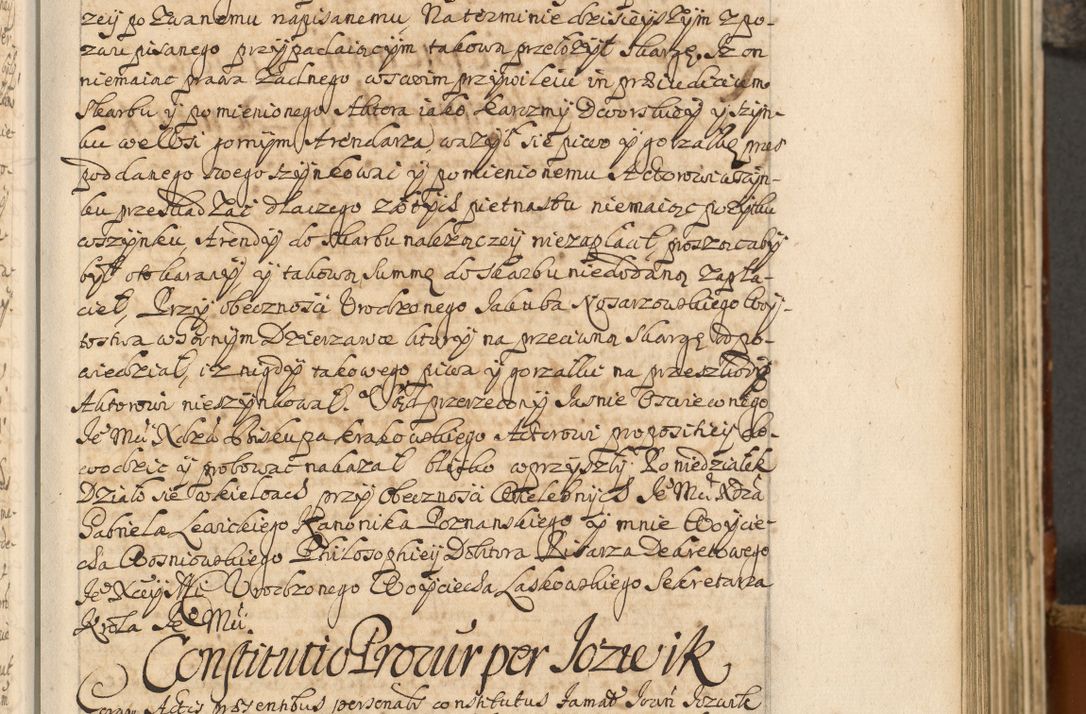 zey pozwanemu napisanemu, Na terminie dzisieyszym z po-
zwu pisanego przypadaiącym takową przełożył skargę, Iz on
niemaiąc prawa zadnego w swoim przywileiu in præiudicium
skarbu y pomienionego Aktora iako karczmy Dworskiey y szyn-
ku we Wsi gornym Arendarza, wazył się piwo y gorzałkę przez
poddanego swego szynkować y pomienionemu Actorowi w szyn-
ku przeszkadzać dlaczego złotych pietnastu niemaiąc pozytku
w szynku, Arendy do skarbu nalezączey niezapłacił, prosząc aby
był otokarany y takową summę do skarbu niedodaną zapła-
cieł, Przy obecznosci Urodzonego Jakuba Nosarzowskiego Woy-
tostwa w Gornym Dzierzawce ktory na przeciwną skargę odpo-
wiedział, iz nigdy takowego piwa y gorzałki na przeszkodę
Aktorowi nieszynkował. Sąd przerzeczony Jasnie Oswieconego
Je° Mci Xdza Biskupa krakowskiego Actorowi propositiey do-
wodzić y probować nakazał blisko w przyszły Poniedziałek
Działo się w kielcach przy obecznosci Wielebnych Je° Mci Xdza
Gabriela Lewickiego Kanonika Poznanskiego y mnie Woycie-
cha Bosniowskiego Philosophiey Doktora Pisarza Dekretowego
Je° Xcey Mci Urodzonego Woyciecha Laskowskiego Sekretarza
Krola Je° Mci
Constitutio Procur per Jozwik
Coram Actis præsentibus personalr constitutus Famat° Joan Jozwik